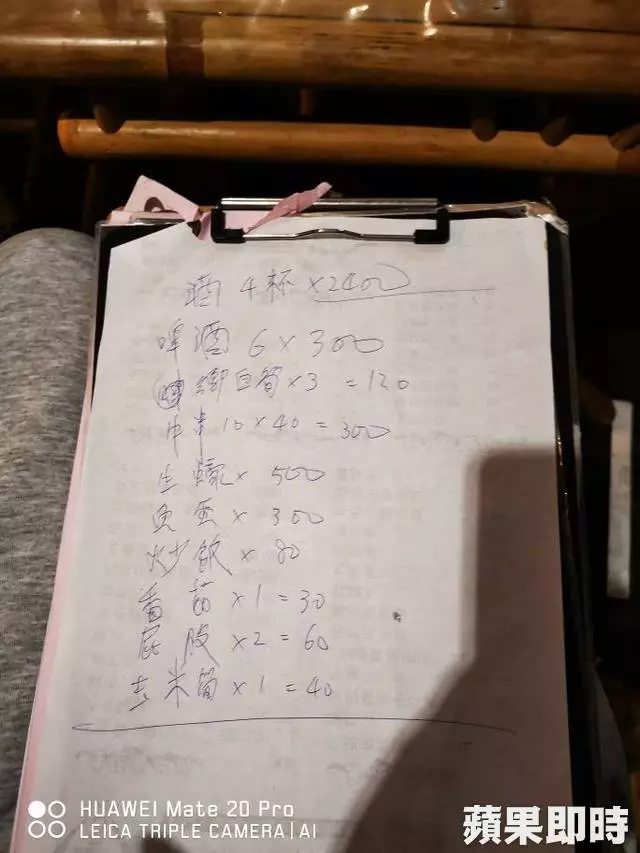 酒 4杯 ×2400
啤酒 6×300
綁白筍×3 =120
中半10×40=300
生蠔× 500
魚蛋× 300
炒飯× 80
番茄×1=30
屁股×2=60
玉米筍×1=40
HUAWEI Mate 20 Pro
LEICA TRIPLE CAMERA|AI
蘋果即時